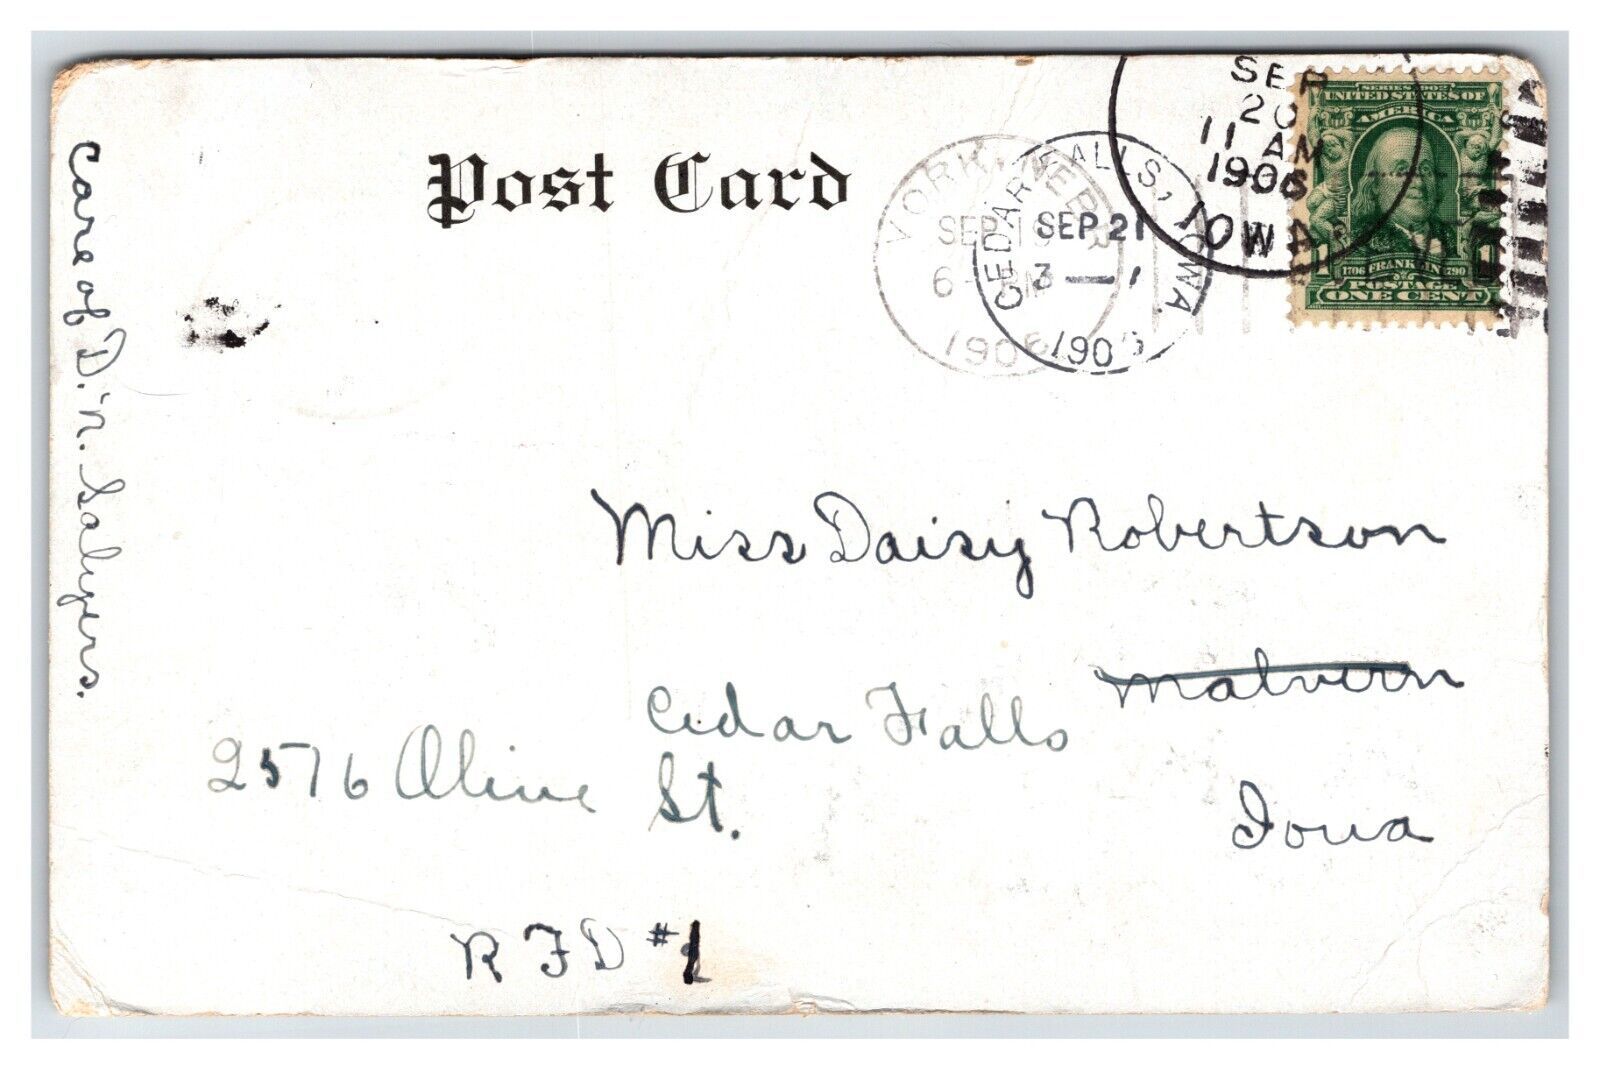 Post Card
YORK, NEBR.
SEP
6
1906
CEDAR FALLS, IOWA.
SEP 21
3 — 1
1906
SEP
20
11 AM
1906
IOWA
SERIES 1902
UNITED STATES OF
AMERICA
1706 FRANKLIN 1790
POSTAGE
1 ONE CENT
Care of D. N. Salyers.
Miss Daisy Robertson
Malvern
Cedar Falls
2576 Olive St.
Iowa
R F D #1